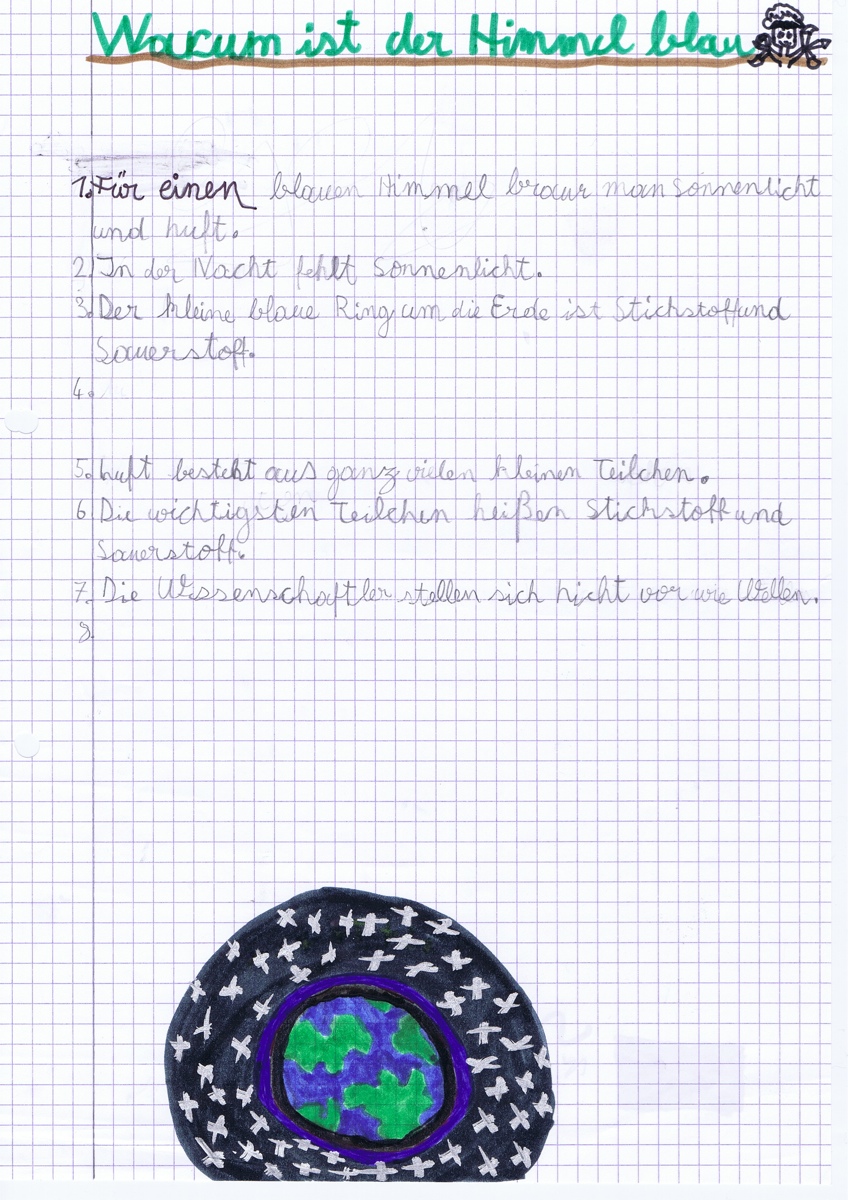 Warum ist der Himmel blau
1. Für einen blauen Himmel braur man Sonnenlicht
und Luft.
2. In der Nacht fehlt Sonnenlicht.
3. Der kleine blaue Ring um die Erde ist Stichstoff und
Sauerstoff.
4.
5. Luft besteht aus ganz vielen kleinen Teilchen.
6. Die wichtigsten Teilchen heißen Stichstoff und
Sauerstoff.
7. Die Wissenschaftler stellen sich Licht vor wie Wellen.
8.